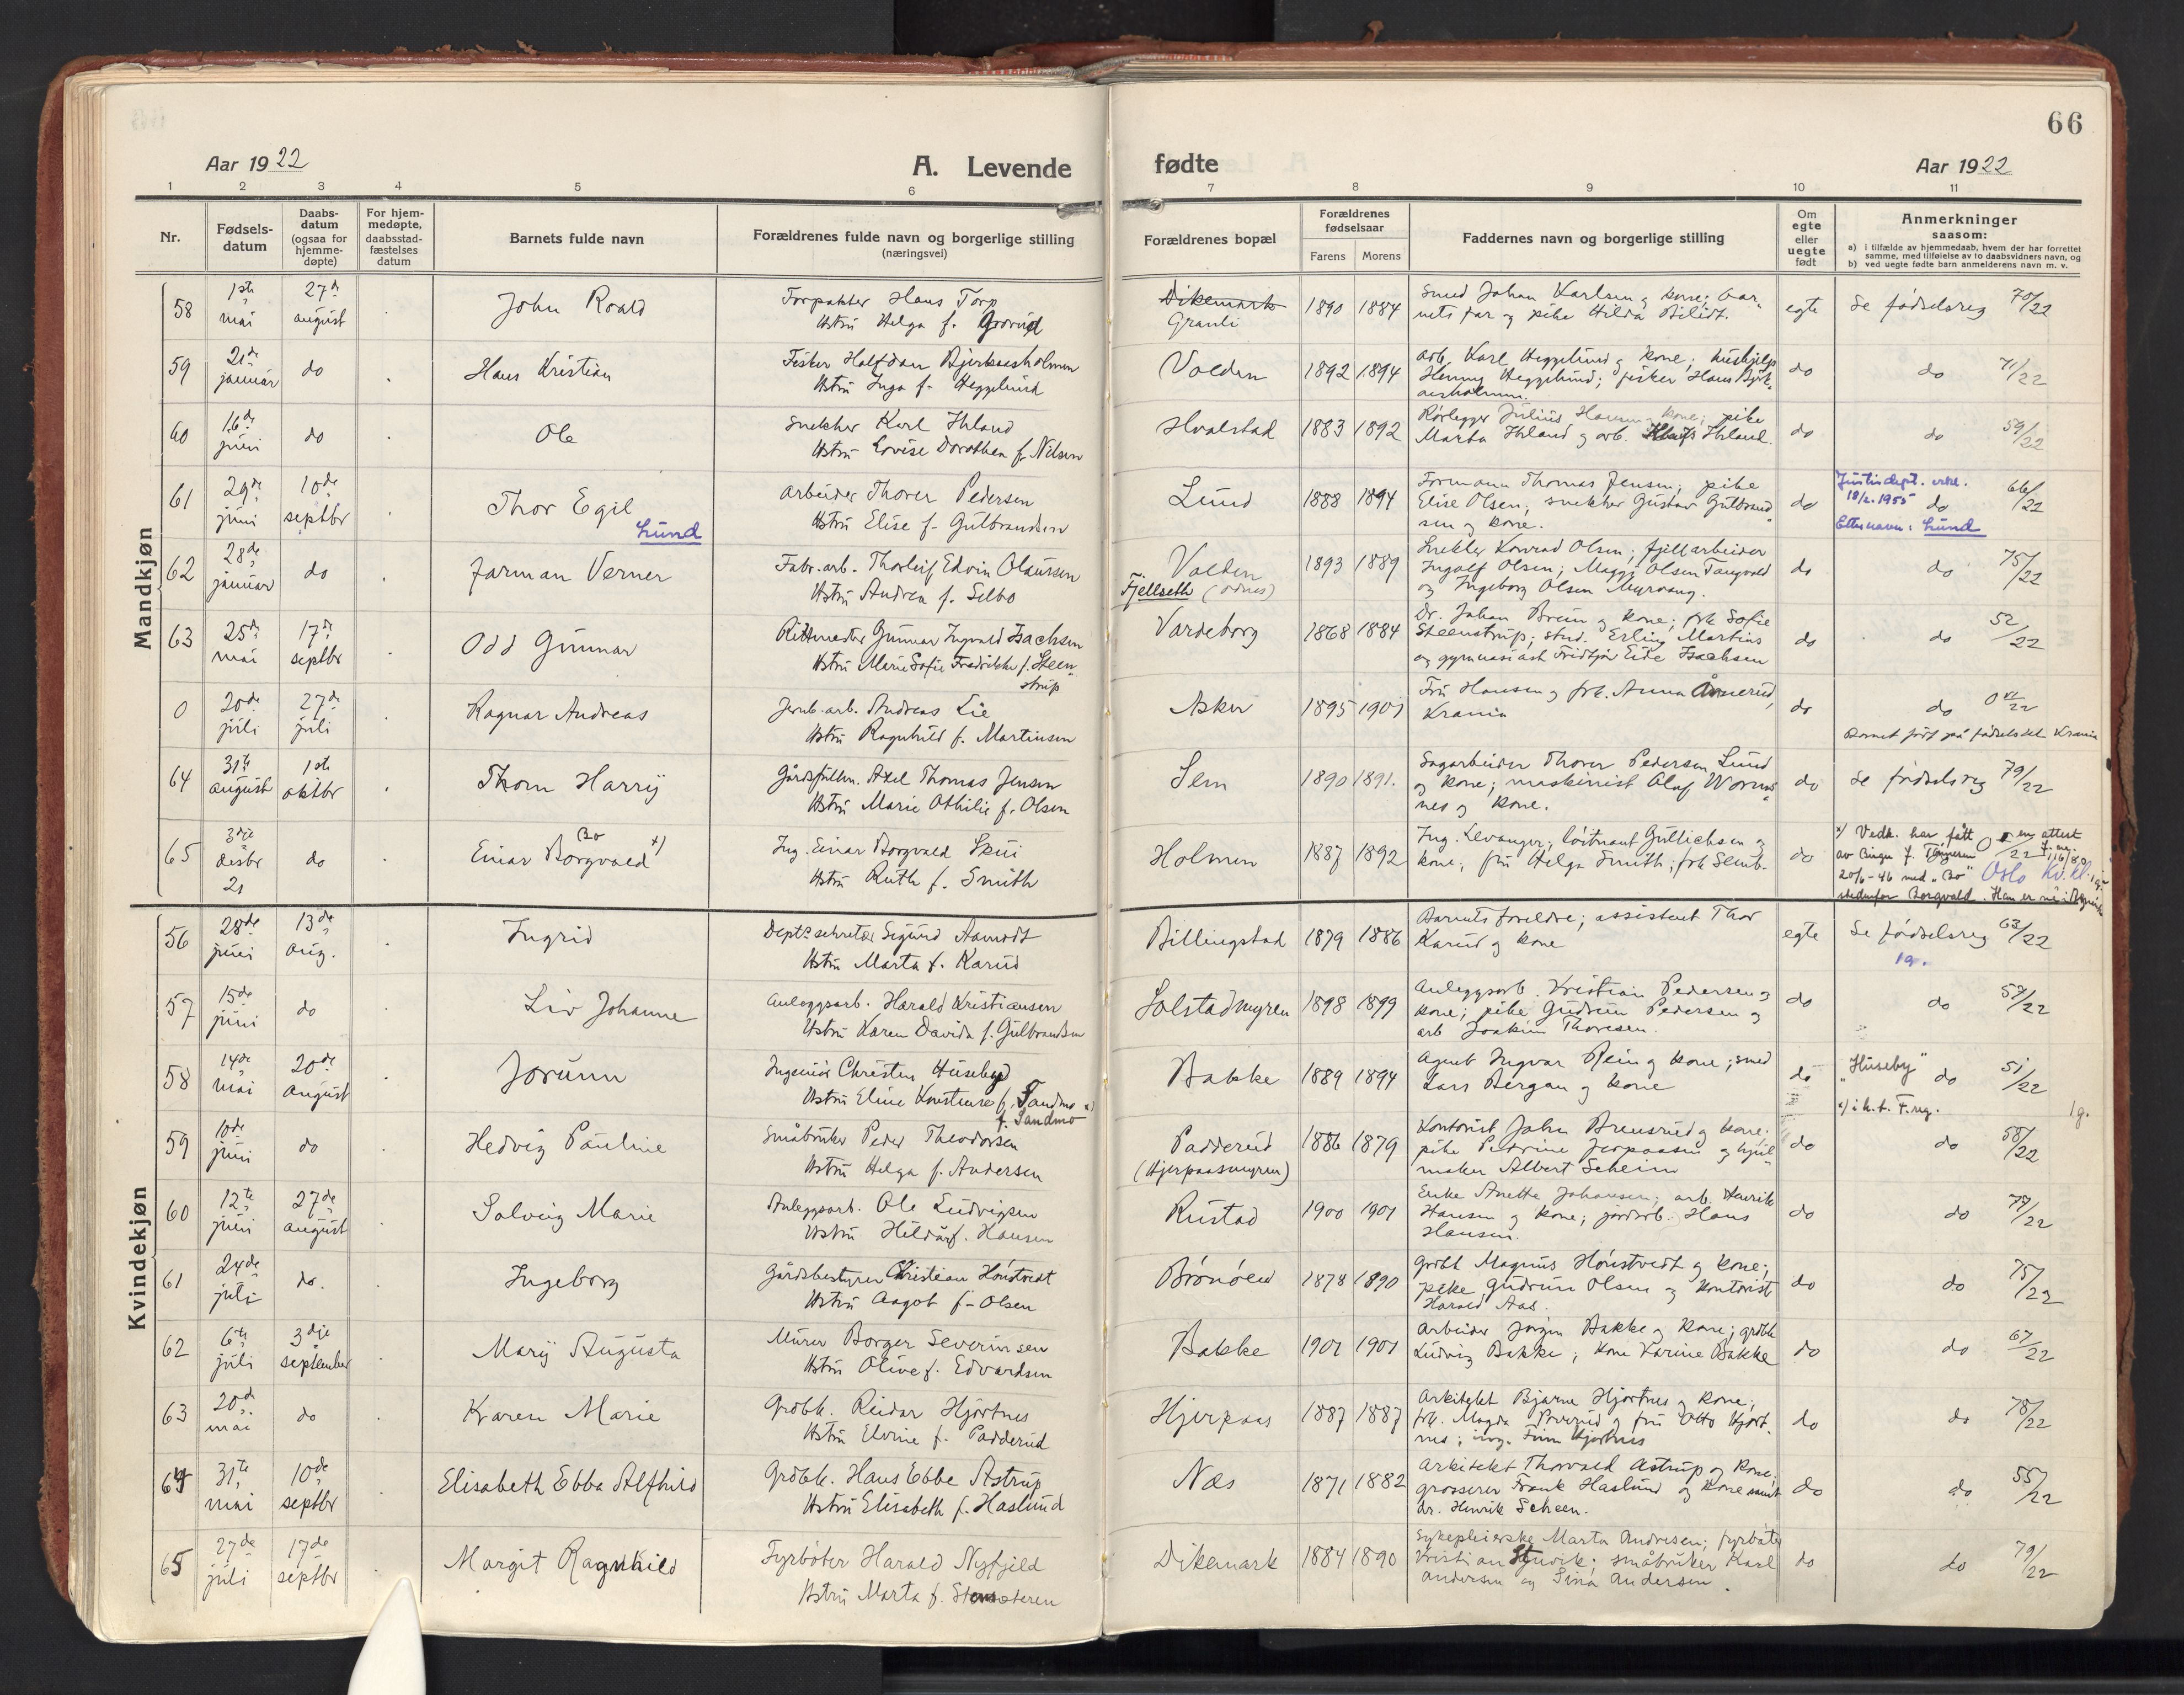 66
Aar 1922 A. Levende fødte Aar 1922
1 2 3 4 5 6 7 8 9 10 11
Nr.
Fødsels-
datum
Daabs-
datum
(ogsaa for
hjemme-
døpte)
For hjem-
medøpte,
daabsstad-
fæstelses
datum
Barnets fulde navn
Forældrenes fulde navn og borgerlige stilling
(næringsvei)
Forældrenes bopæl
Forældrenes
fødselsaar
Farens Morens
Faddernes navn og borgerlige stilling
Om
egte
eller
uegte
født
Anmerkninger
saasom:
a) i tilfælde av hjemmedaab, hvem der har forrettet
samme, med tilføielse av to daabsvidners navn, og
b) ved uegte fødte barn anmelderens navn m. v.
Mandkjøn
58 1ste mai 27de august John Roald
Forpakter Hans Torp
Hstru Helga f. Grorud
Dikemark
Granli
1890 1884
Smed Johan Karlsen og kone; bar-
nets far og pike Hilda Bilidt.
egte Se fødselsreg 70/22
59 21de januar do Hans Kristian
Fisker Halfdan Bjerkaasholmen
Hstru Inga f. Heggelund
Volden 1892 1894
Arb. Karl Heggelund og kone; hushjelp
Henny Heggelund; fisker Hans Bjerk-
aasholmen.
do do 71/22
60 16de juni do Ole
Snekker Karl Ihland
Hstru Lovise Dorothea f. Nilsen
Hvalstad 1883 1892
Rørlegger Julius Hansen og kone; pike
Marta Ihland og arb. Ihland.
do do 59/22
61 29de juni 10de septbr Thor Egil
Lund
Arbeider Thorer Pedersen
Hstru Elise f. Gulbrandsen
Lund 1888 1894
Formann Thomas Jensen; pike
Elise Olsen; snekker Gustav Gulbrand-
sen og kone.
do do 66/22
Justisdept. erkl.
18/2.1955
Etternavn: Lund
62 28de januar do Jarman Verner
Fabr.arb. Thorleif Edvin Olaussen
Hstru Andrea f. Selbo
Volden
Fjellseth (Odnes)
1893 1889
Snekker Konrad Olsen; fjellarbeider
Ingolf Olsen; Maggi Olsen Tangvald
og Ingeborg Olsen Myrvang.
do do 75/22
63 25de mai 17de septbr Odd Gunnar
Rittmester Gunnar Ingvald Isachsen
Hstru Marie Sofie Fredrikke f. Steen-
strup
Vardeborg 1868 1884
Dr. Johan Bruun og kone; frk Sofie
Steenstrup; stud. Erling Martins
og gymnasiast Fridtjov Eide Isachsen
do do 52/22
0 20de juli 27de juli Ragnar Andreas
Jernb.arb. Andreas Lie
Hstru Ragnhild f. Martinsen
Asker 1895 1901
Fru Hansen og frk. Anna Aamerud,
Krania
do do 0 /22
Barnet født på fødselsdel Krania
64 31te august 1ste oktbr Thom Harry
Gårdsfullm. Axel Thomas Jensen
Hstru Marie Othilie f. Olsen
Sem 1890 1891.
Sagarbeider Thorer Pedersen Lund
og kone; maskinist Olaf Worm-
nes og kone.
do Se fødselsreg 79/22
65 3dje desbr 21 do Einar Borgvald x)
Bo
Ing. Einar Borgvald Skui
Hstru Ruth f. Smith
Holmen 1887 1892
Ing. Levanger, løitnant Gullichsen og
kone, fru Helga Smith; frk
do
x) Vedk. har fått
20/6-46 med "Bo" Oslo
istedenfor Borgvald. Han er nu i
Kvindekjøn
56 28de juni 13de aug. Ingrid
Dept.sekretær Sigurd Aamodt
Hstru Marta f. Karud
Billingstad 1879 1886
Barnets foreldre; assistent Thor
Karud og kone
egte Se fødselsreg 63/22
1g.
57 15de juni do Liv Johanne
Anleggsarb. Harald Kristiansen
Hstru Karen Davida f. Gulbrandsen
Solstadmyren 1898 1899
Anleggsarb. Kristian Pedersen og
kone; pike Gudrun Pedersen og
arb Joakim Thoresen.
do do 57/22
58 14de mai 20de august Jorunn
Ingeniør Christen Huseby
Hstru Eline Konstanse f. Tandmo x)
f. Sandmo
Bakke 1889 1894
Agent Ingvar Rein og kone; smed
Lars Bergan og kone
do "Huseby" do 51/22
x) i h.t. F.reg. 1g.
59 10de juni do Hedvig Pauline
Småbruker Peder Theodorsen
Hstru Helga f. Andersen
Padderud
(Hjerpaasmyren)
1886 1879
Kontorist John Brensrud og kone;
pike Petrine Jerpaasen og hjul-
maker Albert Scheim
do do 58/22
60 12te juni 27de august Solveig Marie
Anleggsarb. Ole Ludvigsen
Hstru Hildur f. Hansen
Rustad 1900 1901
Enke Anette Johansen; arb. Henrik
Hansen og kone; jordarb. Hans
Hansen.
do do 77/22
61 24de juli do. Ingeborg
Gårdsbestyrer Christian Hønstvedt
Hstru Aagot f. Olsen
Brønøen 1878 1890
Grdbr Magnus Hønstvedt og kone;
pike Gudrun Olsen og kontorist
Harald Aas.
do do 75/22
62 6te juli 3dje september Mary Augusta
Murer Borger Severinsen
Hstru Olive f. Edvardsen
Bakke 1901 1901
Arbeider Jørgen Bakke og kone; grdbr
Ludvig Bakke; kone Karine Bakke
do do 67/22
63 20de mai do Karen Marie
Grdbr. Reidar Hjortnes
Hstru Elvine f. Padderud
Hjerpaas 1887 1887
Arkitekt Bjarne Hjortnes og kone;
frk. Magda og fru Otto Hjort-
nes; ing. Finn Hjortnes
do do 78/22
64 31te mai 10de septbr Elisabeth Ebba Alfhild
Grdbr. Hans Ebbe Astrup
Hstru Elisabeth f. Haslund
Næs 1871 1882
Arkitekt Thorvald Astrup og kone;
grosserer Frank Haslund og kone samt
dr. Henrik Scheen.
do do 55/22
65 27de juli 17de septbr Margit Ragnhild
Fyrbøter Harald Nyfjeld
Hstru Marta f.
Dikemark 1884 1890
Sykepleierske Marta Andresen; fyrbøter
Kristian Stuvik; småbruker Karl
Andersen og Sina Andersen.
do do 79/22